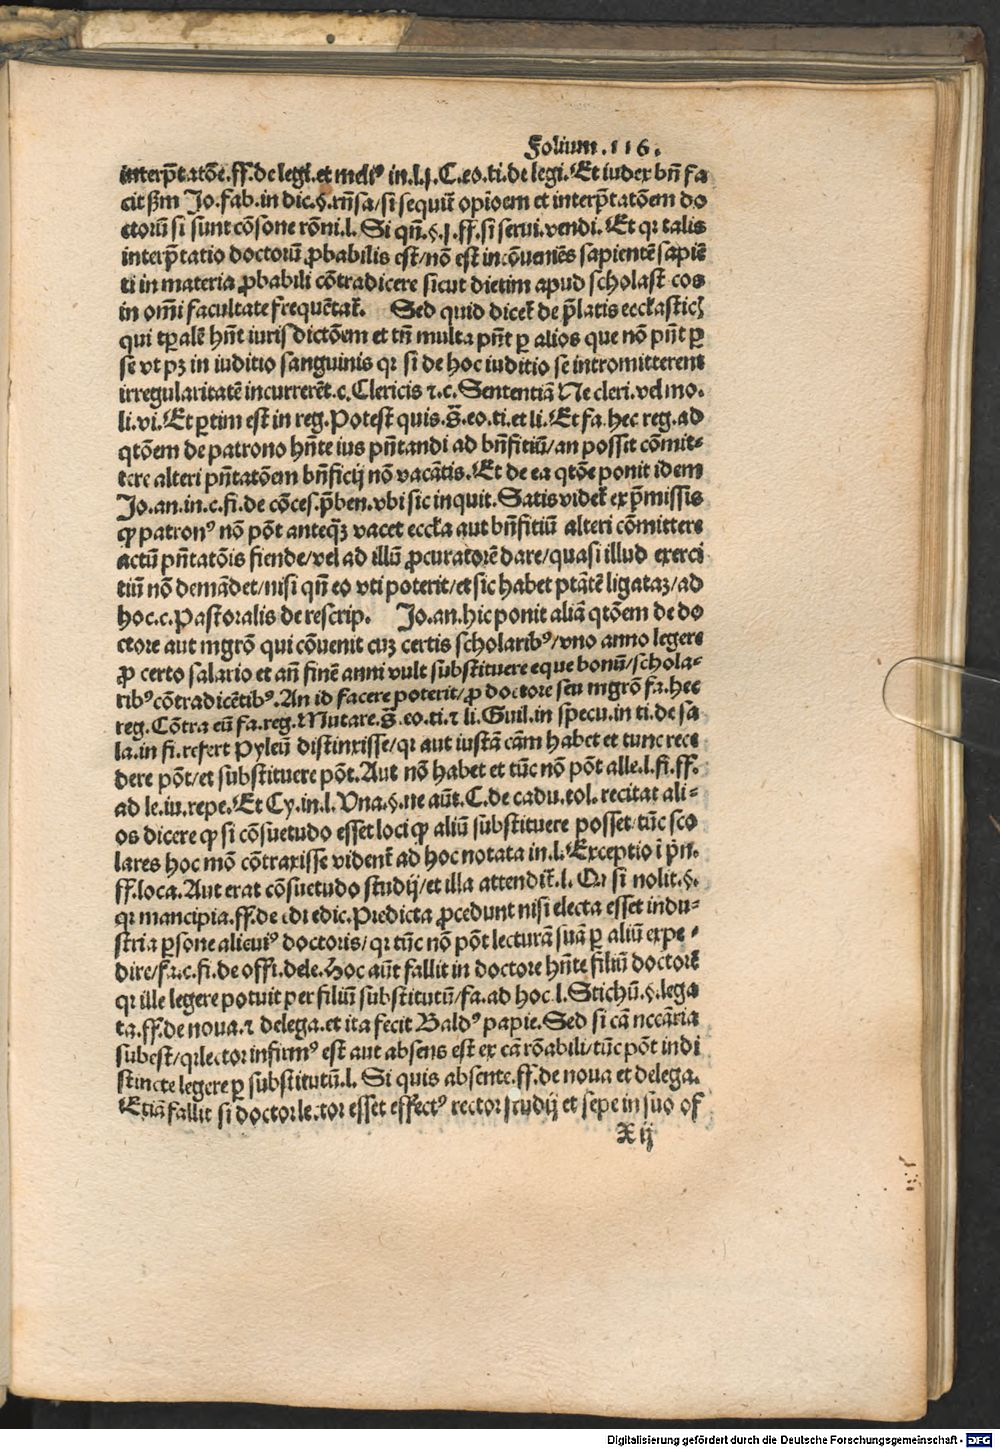 Folium.116.
interp̄tatōē.ff.de legi.et melꝰ in.l.j.C.eo.ti.de legi.Et iudex bn̄ fa
cit s̄m Jo.fab.in dic.§.rn̄sa/si sequit̄ opioem et interp̄tatōem do
ctorū si sunt cōsone rōni.l. Si qn̄.§.j.ff.si serui.vendi. Et qꝛ talis
interp̄tatio doctorū ꝓbabilis est/nō est incōueniēs sapientē sapiē
ti in materia ꝓbabili cōtradicere sicut dietim apud scholasticos
in om̄i facultate frequētat̄. Sed quid dicet̄ de p̄latis eccl̄astic̄
qui tp̄alē hn̄t iurisdictōem et tn̄ multa pn̄t ꝑ alios que nō pn̄t ꝑ
se vt pꝫ in iuditio sanguinis qꝛ si de hoc iuditio se intromitterent
irregularitatē incurrerēt.c.Clericis ⁊.c.Sententiā Ne cleri.vel mo.
li.vi.Et ꝑtim est in reg.Potest quis.s̄.eo.ti.et li.Et fa.hec reg.ad
qtōem de patrono hn̄te ius pn̄tandi ad bn̄fitiū/an possit cōmit-
tere alteri pn̄tatōem bn̄ficij nō vacātis.Et de ea qtōe ponit idem
Jo.an.in.c.fi.de cōces.p̄ben.vbi sic inquit.Satis videt̄ ex p̄missis
ꝙ patronꝰ nō pōt anteqꝫ vacet eccl̄a aut bn̄fitiū alteri cōmittere
actū pn̄tatōis fiende/vel ad illū ꝓcuratorē dare/quasi illud exerci
tiū nō demādet/nisi qn̄ eo vti poterit/et sic habet ptātē ligataꝫ/ad
hoc.c.Pastoralis de rescrip. Jo.an.hic ponit aliā qtōem de do
ctore aut mgrō qui cōuenit cuꝫ certis scholaribꝰ/vno anno legere
ꝓ certo salario et an̄ finē anni vult substituere eque bonū/schola-
ribꝰ cōtradicētibꝰ.An id facere poterit/ꝓ doctore seu mgrō fa.hec
reg.Cōtra eū fa.reg.Mutare.s̄.eo.ti.⁊ li.Guil.in specu.in ti.de sa
la.in fi.refert Pyleū distinxisse/qꝛ aut iustā cām habet et tunc rece
dere pōt/et substituere pōt.Aut nō habet et tūc nō pōt alle.l.fi.ff.
ad le.iu.repe.Et Cy.in.l.Vna.§.ne aūt.C.de cadu.tol.recitat ali-
os dicere ꝙ si cōsuetudo esset loci ꝙ aliū substituere posset/tūc sco
lares hoc mō cōtraxisse vident̄ ad hoc notata in.l.Exceptio ī p̄n.
ff.loca.Aut erat cōsuetudo studij/et illa attendit̄.l. Qꝛ si nolit.§.
qꝛ mancipia.ff.de edi edic.Predicta ꝓcedunt nisi electa esset indu-
stria ꝑsone alicuiꝰ doctoris/qꝛ tūc nō pōt lecturā suā ꝑ aliū expe-
dire/fa.c.fi.de offi.dele.Hoc aūt fallit in doctore hn̄te filiū doctorē
qꝛ ille legere potuit per filiū substitutū/fa.ad hoc l.Stichū.§.lega
ta.ff.de noua.⁊ delega.et ita fecit Baldꝰ papie.Sed si cā nccāria
subest/qꝛ lector infirmꝰ est aut absens est ex cā rōabili/tūc pōt indi
stincte legere ꝑ substitutū.l. Si quis absente.ff.de noua et delega.
Etiā fallit si doctor lector esset effectꝰ rector studij et sepe in suo of
X ij
Digitalisierung gefördert durch die Deutsche Forschungsgemeinschaft - DFG